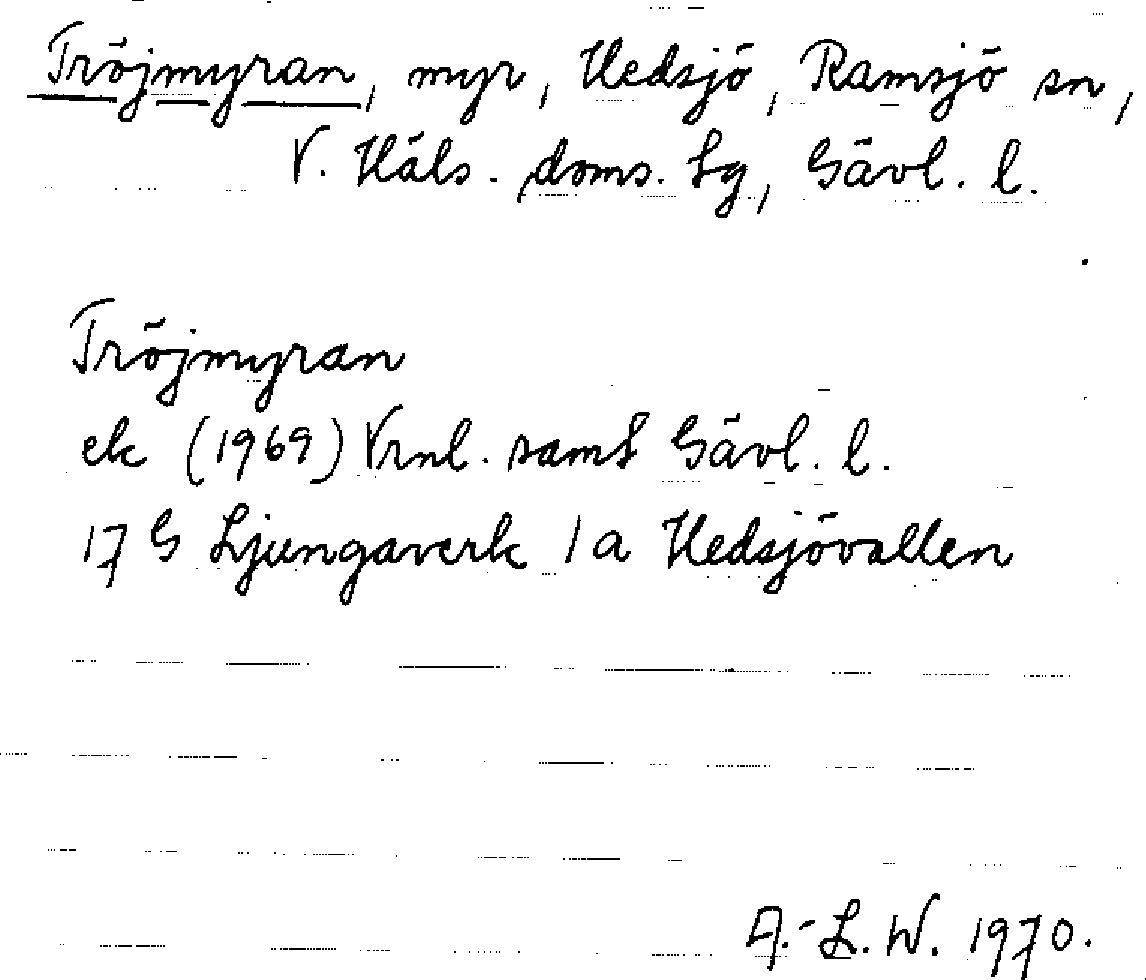 Tröjmyran, myr, Hedsjö, Ramsjö sn,
V. Häls. doms. Lg, Gävl. l.
Tröjmyran
ek (1969) Vrnl. samf Gävl. l.
17 G Ljungaverk 1a Hedsjövallen
A.-L. W. 1970.